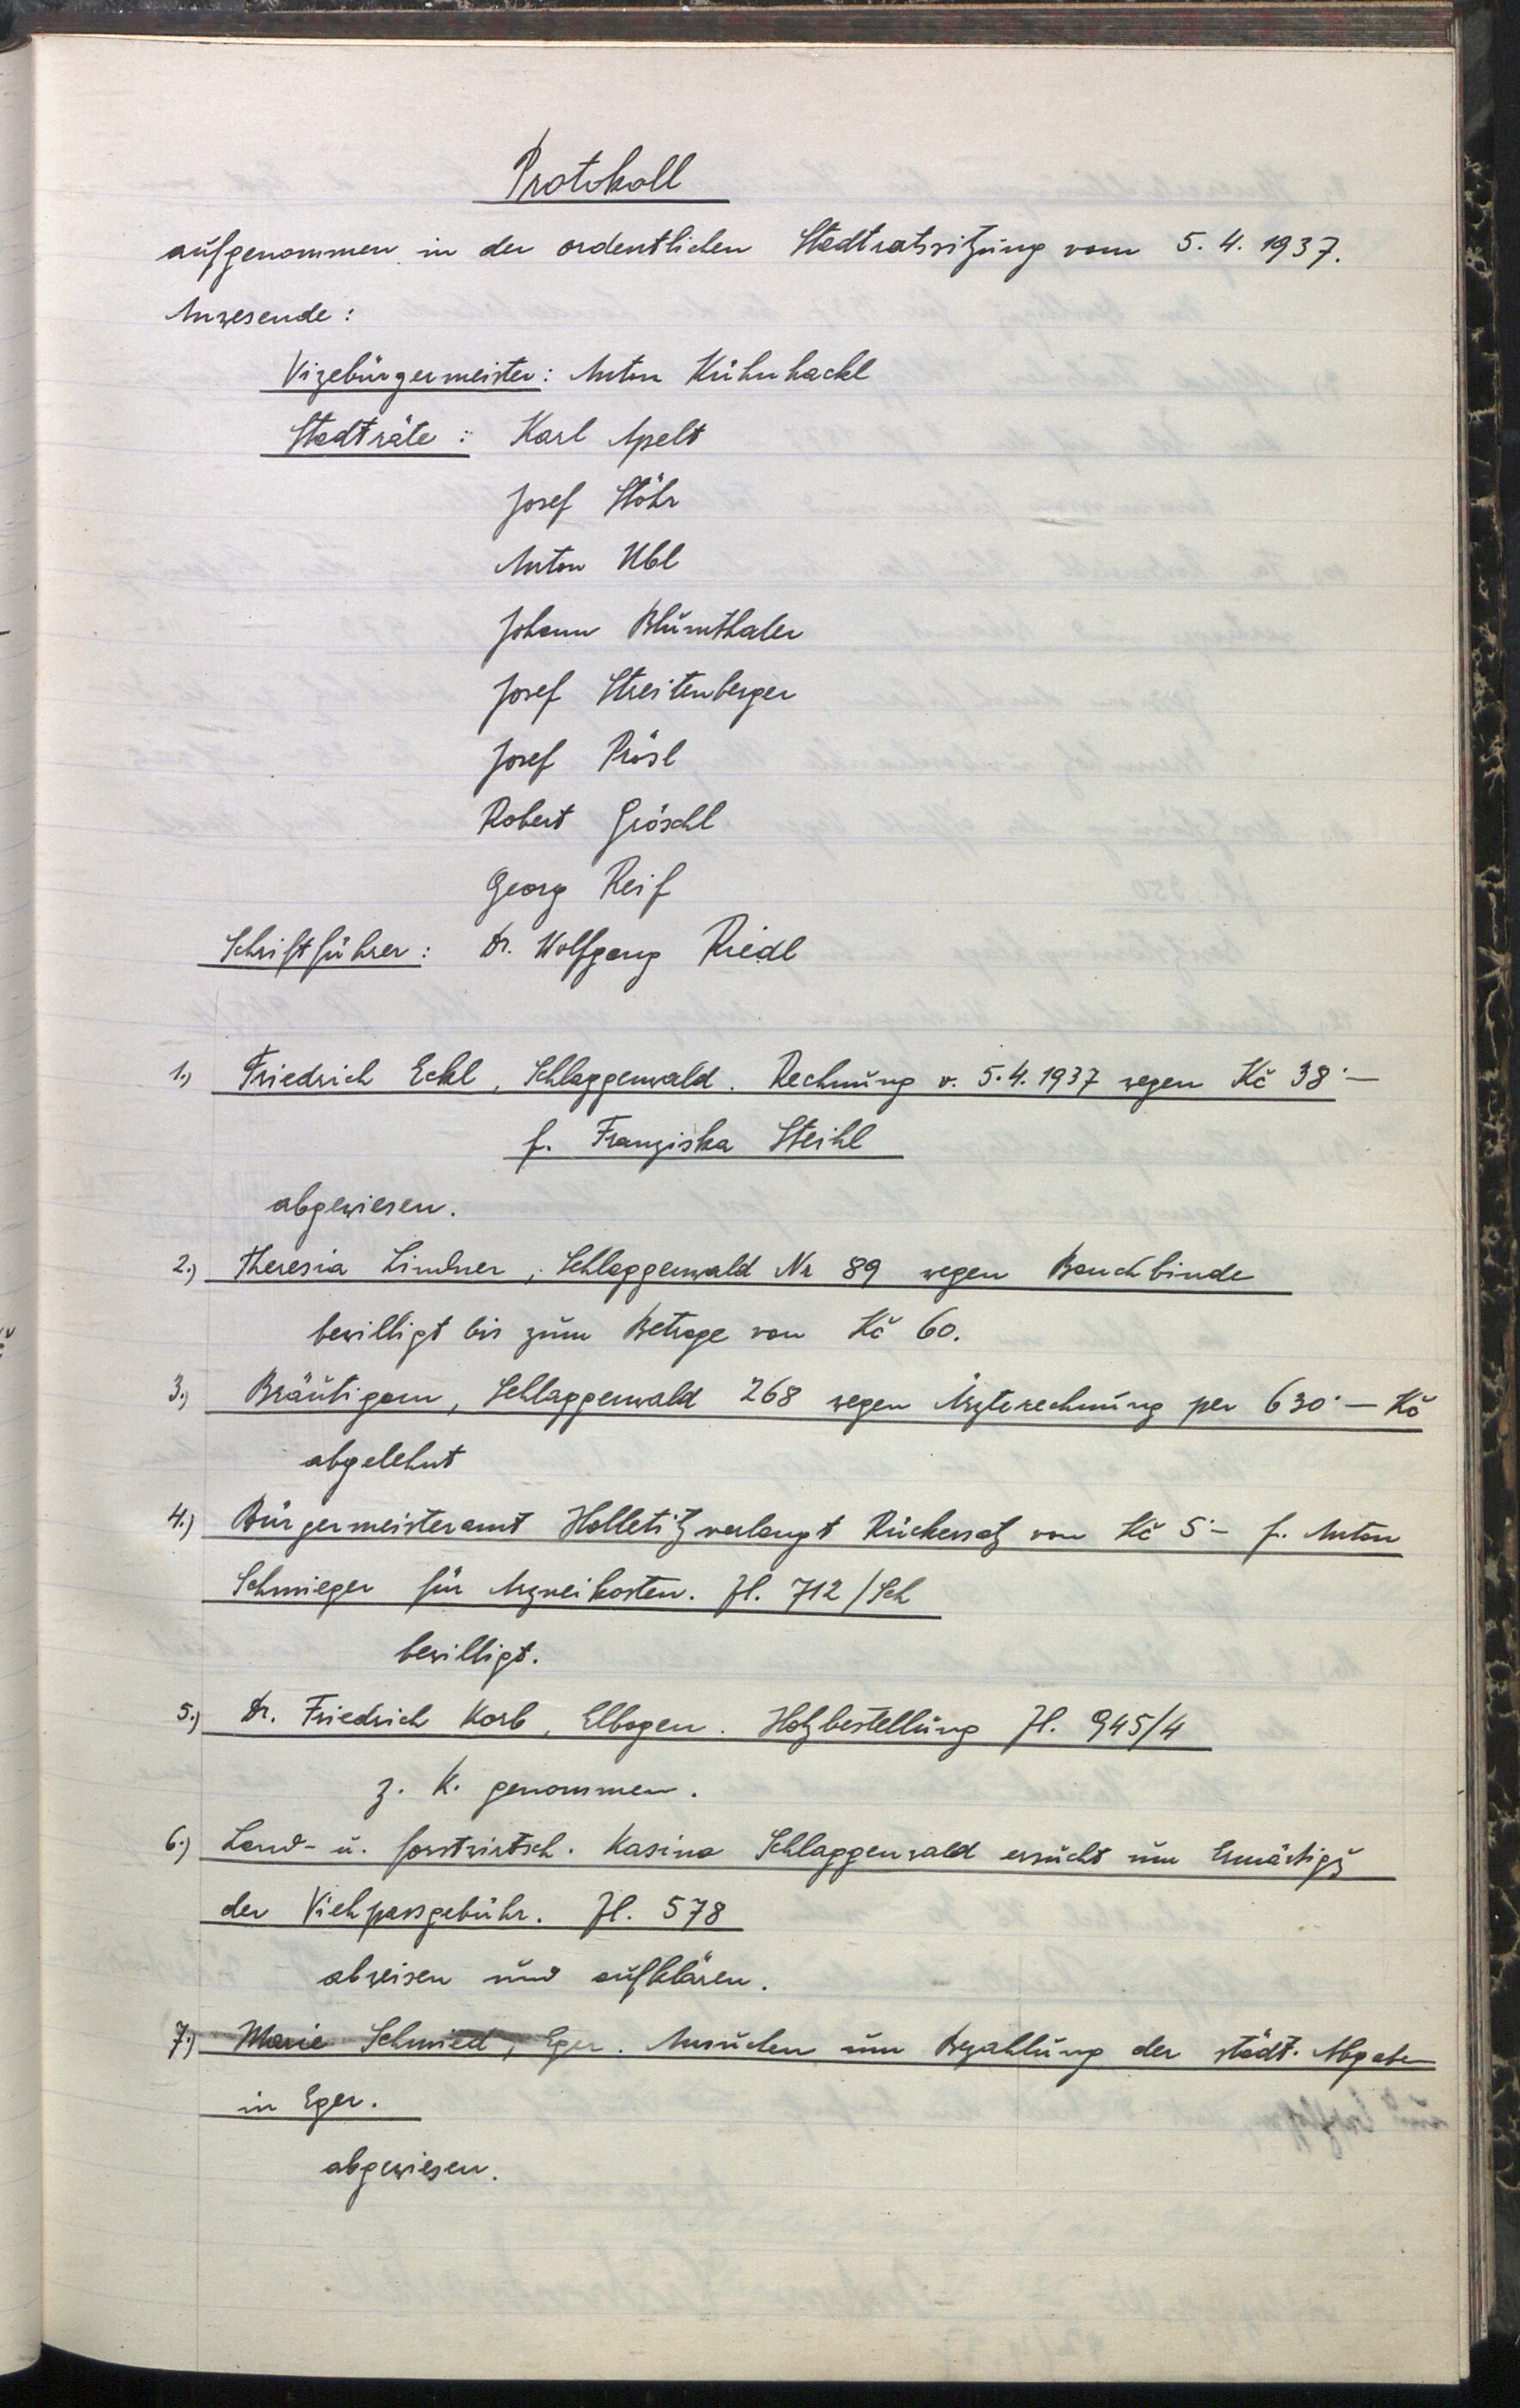 Protokoll
aufgenommen in der ordentlichen Stadtratssitzung vom 5. 4. 1937.
Anwesende:
Vizebürgermeister: Anton Kühnhackl
Stadträte: Karl Apelt
Josef Stöhr
Anton Ubl
Johann Blumthaler
Josef Streitenberger
Josef Prösl
Robert Gröschl
Georg Reif
Schriftführer: Dr. Wolfgang Riedl
1.) Friedrich Eckl, Schlaggenwald. Rechnung v. 5.4.1937 wegen Kč 38·—
f. Franziska Steihl
abgewiesen.
2.) Theresia Lindner, Schlaggenwald Nr 89 wegen Bauchbinde
bewilligt bis zum Betrage von Kč 60.
3.) Bräutigam, Schlaggenwald 268 wegen Ärzterechnung per 630·— Kč
abgelehnt
4.) Bürgermeisteramt Holletitz verlangt Rückersatz von Kč 5·— f. Anton
Schmieger für Arzneikosten. Zl. 712/Sch
bewilligt.
5.) Dr. Friedrich Korb, Elbogen. Holzbestellung Zl. 945/4
z. K. genommen.
6.) Land- u. forstwirtsch. Kasino Schlaggenwald ersucht um Ermäßigg
der Viehpassgebühr. Zl. 578
abweisen und aufklären.
7.) Marie Schmied, Eger. Ansuchen um Bezahlung der städt. Abgaben
in Eger.
abgewiesen.